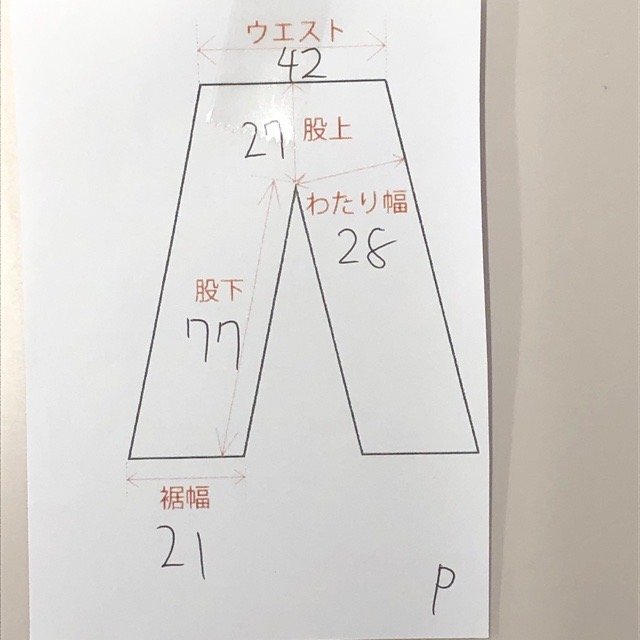 ウエスト
42
27 股上
わたり幅
28
股下
77
裾幅
21
P